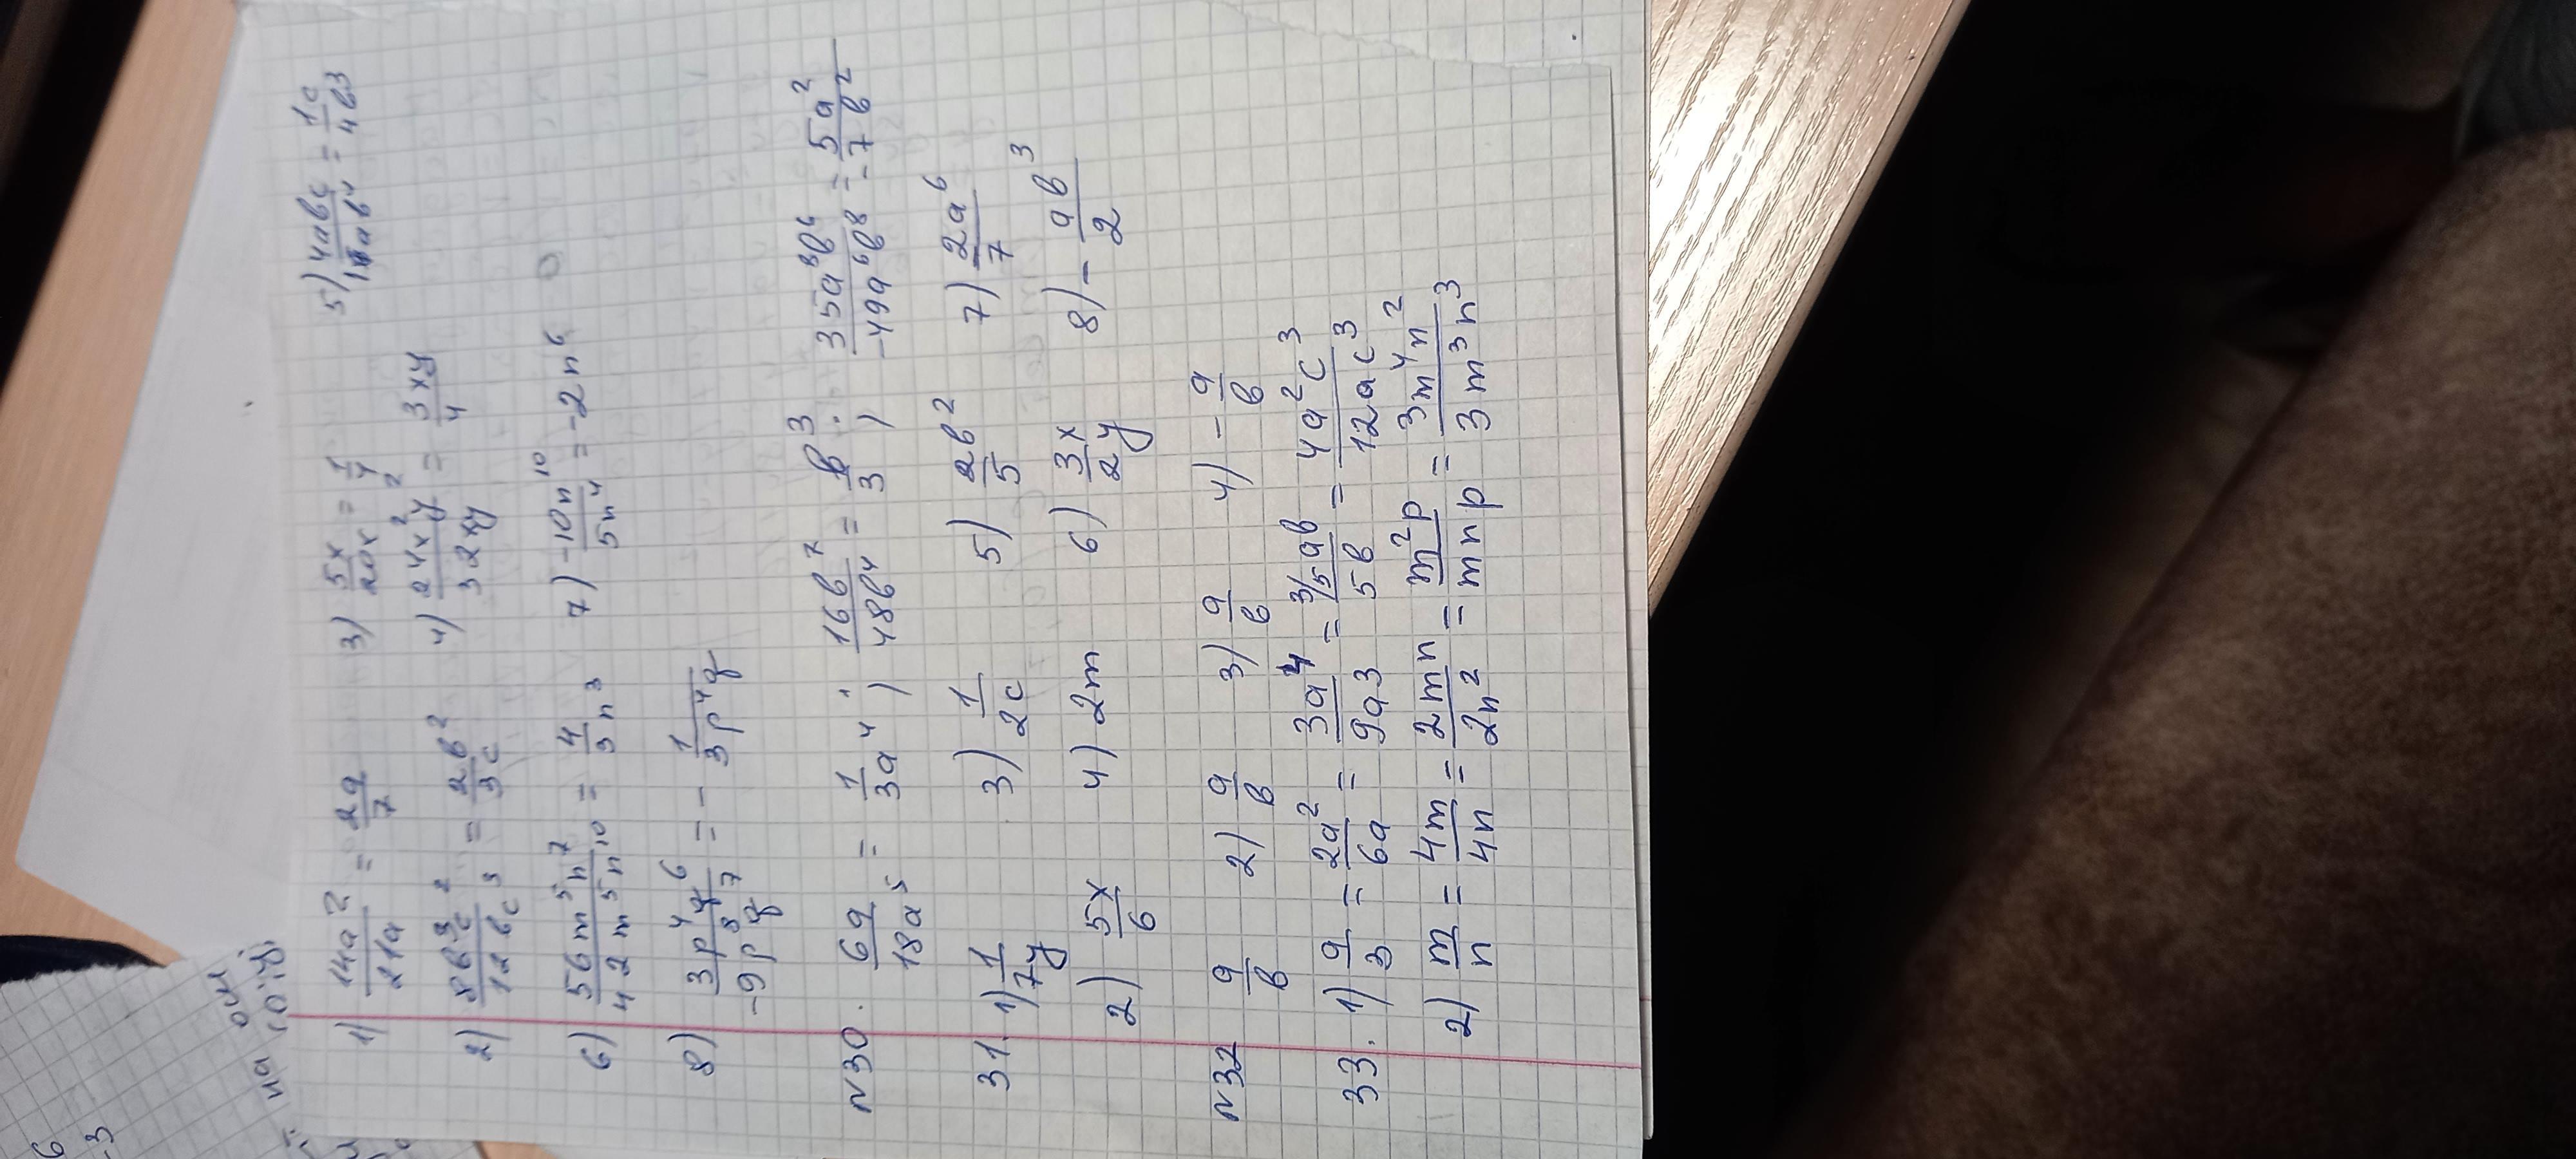 1) 14a²/21a = 2a/7   3) 5x/20x = 1/4   5) 4abc/16ab⁴ = 1c/4b3
2) 8b³c²/12bc³ = 2b²/3c   4) 24x²y²/32xy = 3xy/4
6) 56m⁵n⁷/42m⁵n¹⁰ = 4/3n³   7) -10n¹⁰/5n⁴ = -2n⁶
8) 3p⁴q⁶/-9p⁸q⁷ = - 1/3p⁴q
N30. 6a/18a⁵ = 1/3a⁴ ; 16b⁷/48b⁴ = b³/3 ; 35a⁸b⁶/-49a⁶b8 = 5a²/-7b²
31. 1) 1/7y   3) 1/2c   5) 2b²/5   7) 2a⁶/7
2) 5x/6   4) 2m   6) 3x/2y   8) - ab³/2
N32 a/b   2) a/b   3) a/b   4) - a/b
33. 1) a/3 = 2a²/6a = 3a⁴/9a3 = 5ab/5b = 4a²c³/12ac³
2) m/n = 4m/4n = 2mn/2n² = m²p/mnp = 3m⁴n²/3m³n³